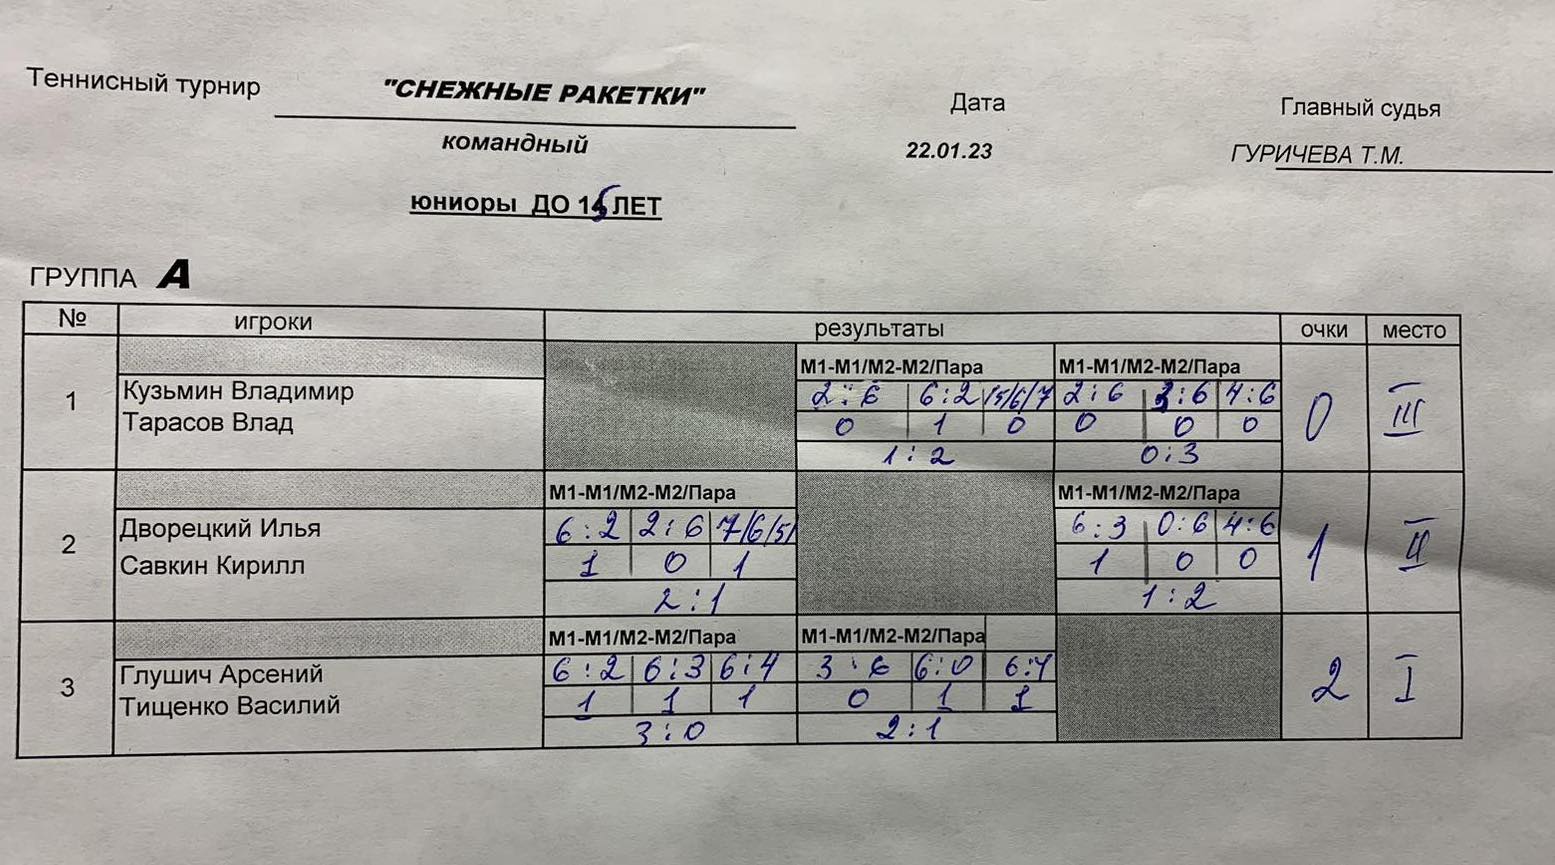 Теннисный турнир "СНЕЖНЫЕ РАКЕТКИ" Дата Главный судья
командный 22.01.23 ГУРИЧЕВА Т.М.
юниоры ДО 15 ЛЕТ
ГРУППА А
№ игроки результаты очки место
М1-М1/М2-М2/Пара М1-М1/М2-М2/Пара
1 Кузьмин Владимир 2:6 6:2 (5)6/7 2:6 3:6 4:6 0 III
Тарасов Влад 0 1 0 0 0 0
1:2 0:3
М1-М1/М2-М2/Пара М1-М1/М2-М2/Пара
2 Дворецкий Илья 6:2 2:6 7/6(5) 6:3 0:6 4:6 1 II
Савкин Кирилл 1 0 1 1 0 0
2:1 1:2
М1-М1/М2-М2/Пара М1-М1/М2-М2/Пара
3 Глушич Арсений 6:2 6:3 6:4 3:6 6:0 6:4 2 I
Тищенко Василий 1 1 1 0 1 1
3:0 2:1